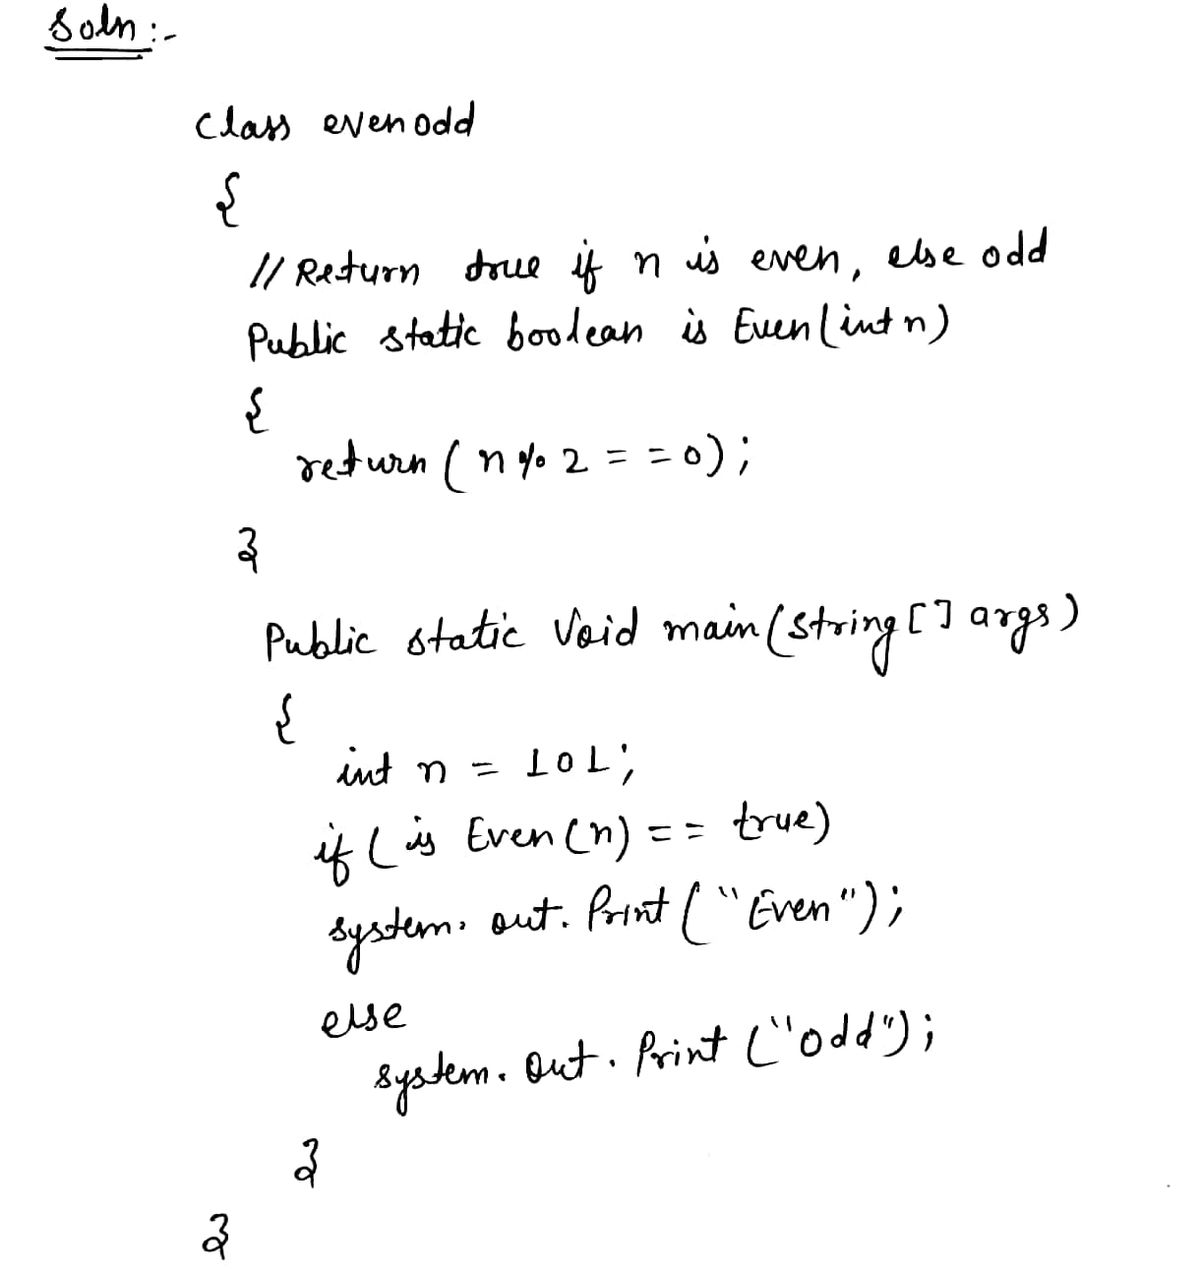 Soln :-
class evenodd
{
// Return true if n is even, else odd
Public static boolean is Even(int n)
{
return ( n % 2 = = 0);
}
Public static Void main(string [] args)
{
int n = 101;
if ( is Even (n) = = true)
system. out. Print ( "Even");
else
system. Out. Print ("odd");
}
}